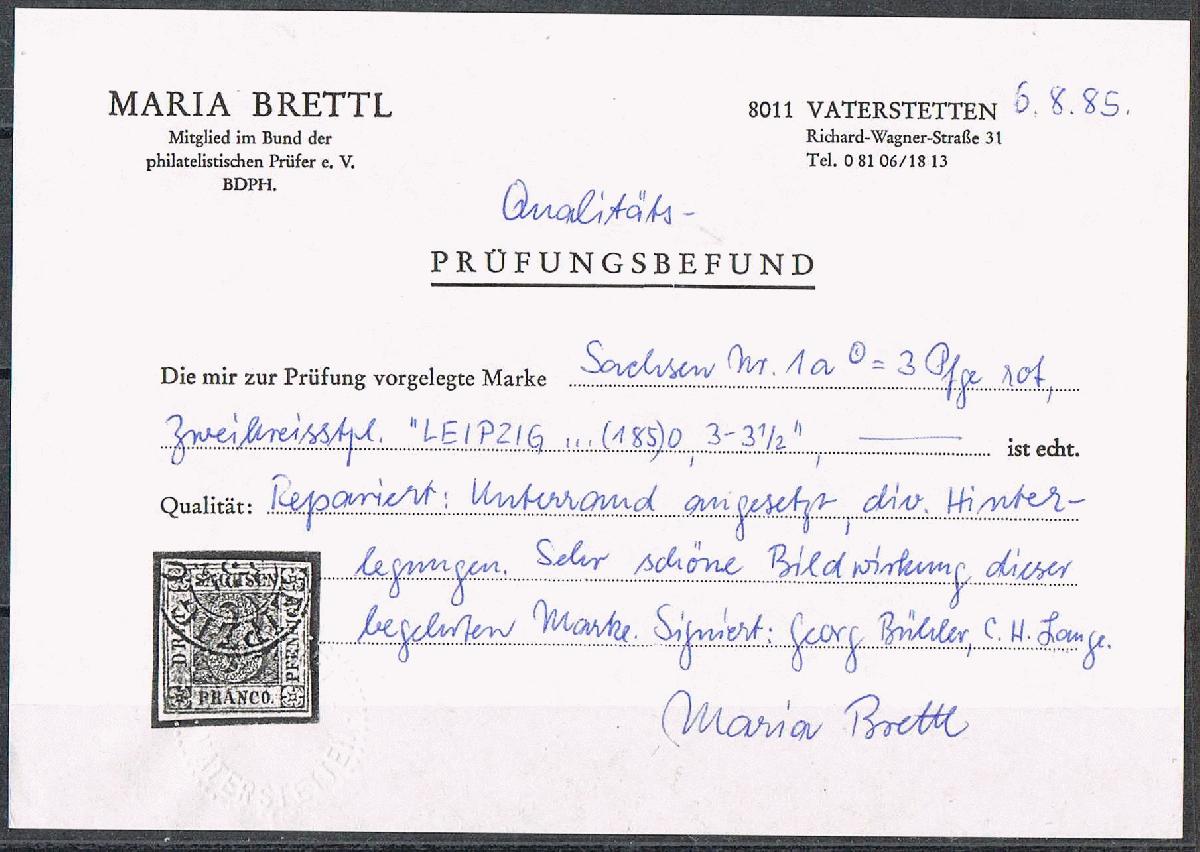 MARIA BRETTL
Mitglied im Bund der
philatelistischen Prüfer e. V.
BDPH.
8011 VATERSTETTEN 6.8.85.
Richard-Wagner-Straße 31
Tel. 0 81 06/18 13
Qualitäts-
PRÜFUNGSBEFUND
Die mir zur Prüfung vorgelegte Marke Sachsen Nr. 1a ⊙ = 3 Pfge rot,
Zweikreisstpl. "LEIPZIG ... (185)0, 3-3½", ist echt.
Qualität: Repariert: Unterrand angesetzt, div. Hinter-
legungen. Sehr schöne Bildwirkung dieser
begehrten Marke. Signiert: Georg Bühler, C. H. Lange.
Maria Brettl
SACHSEN
LEIPZIG
FRANCO.